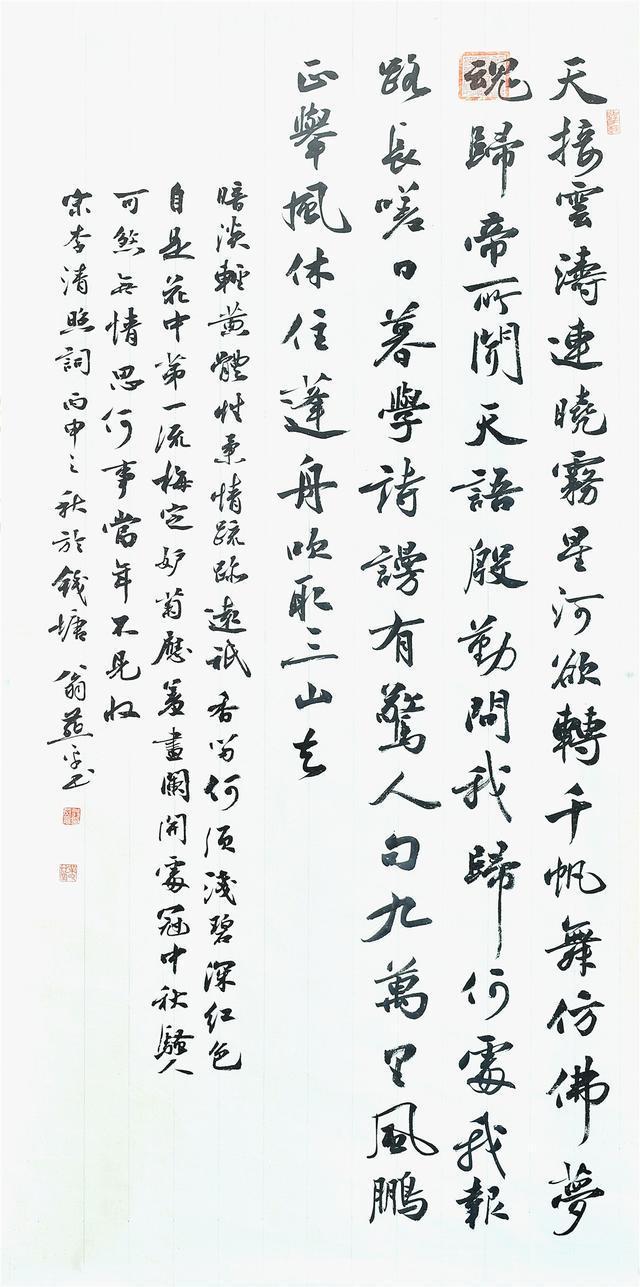 天接雲濤連曉霧星河欲轉千帆舞仿佛夢
魂歸帝所聞天語殷勤問我歸何處我報
路長嗟日暮學詩謾有驚人句九萬里風鵬
正舉風休住蓬舟吹取三山去
暗淡輕黃體性柔情疏跡遠祇香留何須淺碧深紅色
自是花中第一流梅定妒菊應羞畫闌開處冠中秋騷人
可煞無情思何事當年不見收
宋李清照詞丙申之秋於錢塘翁